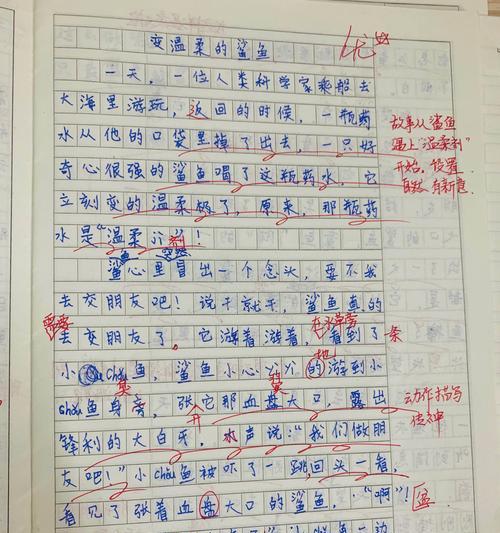 变温柔的鲨鱼
优
一天，一位人类科学家乘船去
大海里游玩，返回的时候，一瓶药
水从他的口袋里掉了出去，一只好
奇心很强的鲨鱼喝了这瓶药水，它
立刻变的温柔极了，原来，那瓶药
水是“温柔剂！
故事从鲨鱼
遇上“温柔剂”
开始，设置
自然有新意
鱼突然
鲨心里冒出一个念头，要不我
去交朋友吧！说干就干，鲨鱼真的
去交朋友了。它游着游着，看到了条
小chǒu鱼，鲨鱼小心yì yì的游到小
地
chǒu鱼身旁，张它那血盘大口，露出
开
锋利的大白牙，小声说：“我们做朋
友吧！”小chǒu鱼被吓了一跳，回头一看，
看见了张着血盘大口的鲨鱼，“啊”！
动作描写
传神
盆